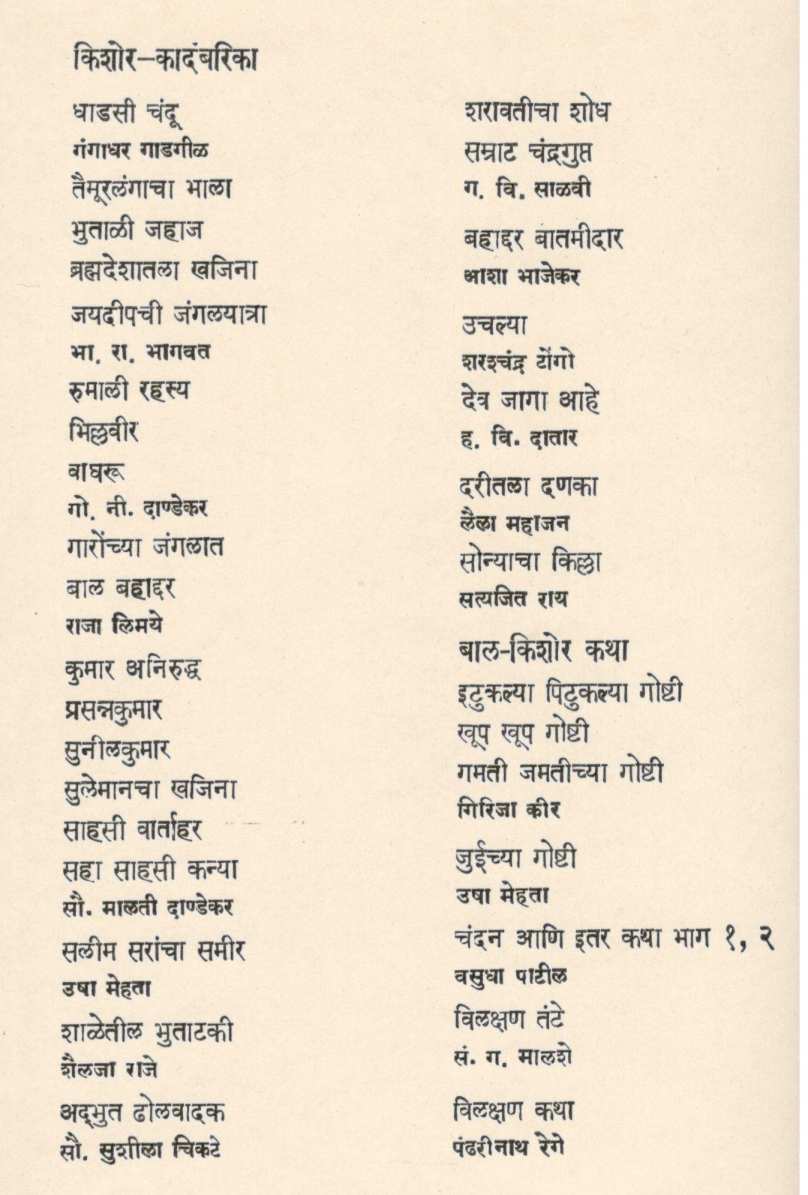 किशोर–कादंबरिका
धाडसी चंदू
गंगाधर गाडगीळ
तैमूरलंगाचा भाला
भुताळी जहाज
ब्रह्मदेशातला खजिना
जयदीपची जंगलयात्रा
भा. रा. भागवत
रुमाली रहस्य
भिल्लवीर
वाघरू
गो. नी. दाण्डेकर
गारोंच्या जंगलात
बाल बहाद्दर
राजा लिमये
कुमार अनिरुद्ध
प्रसन्नकुमार
सुनीलकुमार
सुलेमानचा खजिना
साहसी वार्ताहर
सहा साहसी कन्या
सौ. मालती दाण्डेकर
सलीम सरांचा समीर
उषा मेहता
शाळेतील भुताटकी
शैलजा राजे
अद्भुत ढोलवादक
सौ. सुशीला चिकटे
शरावतीचा शोध
सम्राट चंद्रगुप्त
ग. वि. साळवी
बहाद्दर बातमीदार
आशा भाजेकर
उचल्या
शरश्चंद्र टोंगो
देव जागा आहे
ह. वि. दातार
दरीतला दणका
लैला महाजन
सोन्याचा किल्ला
सत्यजित राय
बाल-किशोर कथा
इटुकल्या पिटुकल्या गोष्टी
खूप खूप गोष्टी
गमती जमतीच्या गोष्टी
गिरिजा कीर
जुईच्या गोष्टी
उषा मेहता
चंदन आणि इतर कथा भाग १, २
वसुधा पाटील
विलक्षण तंटे
सं. ग. मालशे
विलक्षण कथा
पंढरीनाथ रेगे